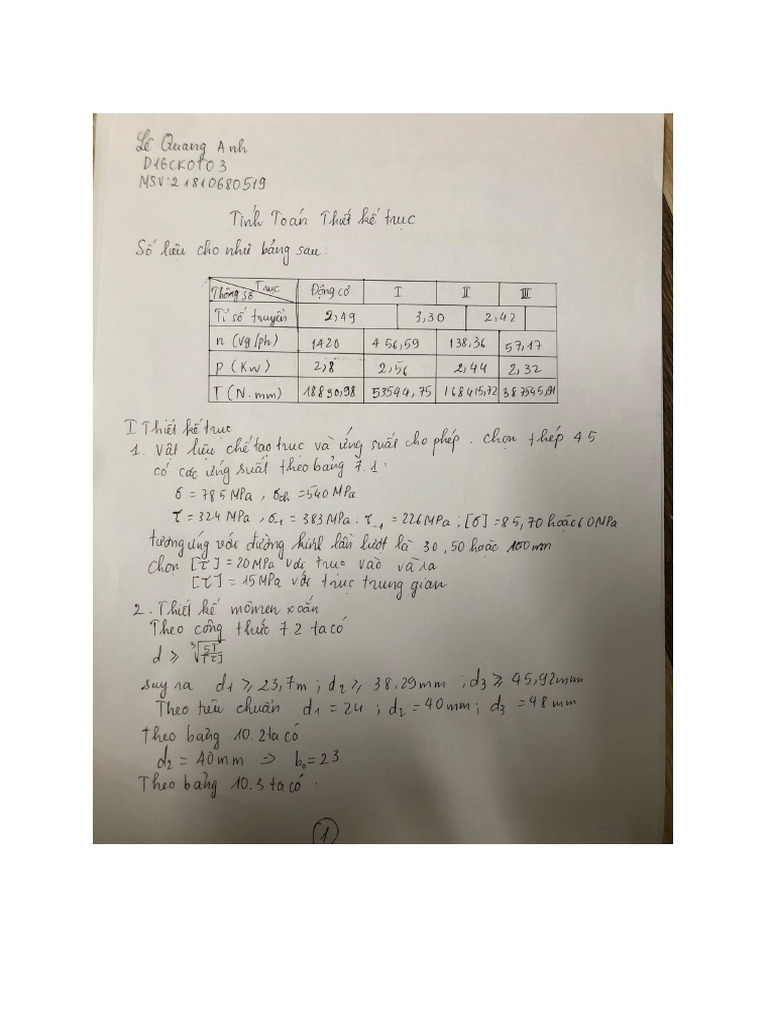 Lê Quang Anh
D16CKOTO3
MSV: 21810680519
Tính Toán Thiết kế trục
Số liệu cho như bảng sau:
Trục
Thông số
Động cơ I II III
Tỉ số truyền 2,49 3,30 2,42
n (vg/ph) 1420 456,59 138,36 57,17
P (Kw) 2,8 2,56 2,44 2,32
T (N.mm) 18830,98 53544,75 168415,72
I Thiết kế trục
1. Vật liệu chế tạo trục và ứng suất cho phép. chọn thép 45
có các ứng suất theo bảng 7.1:
σ = 785 MPa, σch = 540 MPa
τ = 324 MPa, σ-1 = 383 MPa. τ-1 = 226 MPa; [σ] = 85,70 hoặc 60 MPa
tương ứng với đường kính lần lượt là 30, 50 hoặc 100 mm
chọn [τ] = 20 MPa với trục vào và ra
[τ] = 15 MPa với trục trung gian
2. Thiết kế mômen xoắn
Theo công thức 7.2 ta có
d ≥ ∛(5T/[τ])
suy ra d1 ≥ 23,7m; d2 ≥ 38,29mm; d3 ≥ 45,92mm
Theo tiêu chuẩn d1 = 24; d2 = 40mm; d3 = 48mm
theo bảng 10.2 ta có
d2 = 40mm => b0 = 23
Theo bảng 10.3 ta có.
1